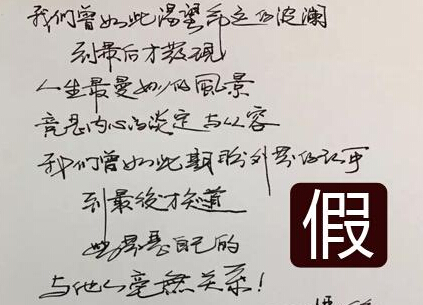 我们曾如此渴望命运的波澜
到最后才发现
人生最曼妙的風景
竟是内心的淡定与从容
我们曾如此期盼外界的认可
到最後才知道
世界是自己的
与他人毫無关系！
假